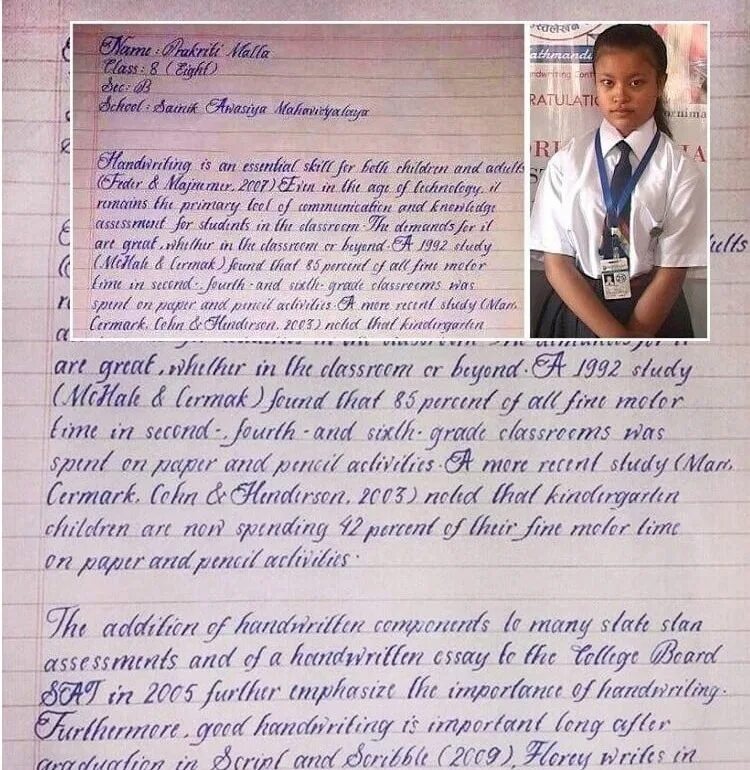 Name : Prakriti Malla
Class : 8 (Eight)
Sec : B
School : Sainik Awasiya Mahavidyalaya
Handwriting is an essential skill for both children and adults
(Feder & Majnemer, 2007) Even in the age of technology, it
remains the primary tool of communication and knowledge
assessment for students in the classroom. The demands for it
are great, whether in the classroom or beyond. A 1992 study
(McHale & Cermak) found that 85 percent of all fine motor
time in second-, fourth-and sixth-grade classrooms was
spent on paper and pencil activities. A more recent study (Marr,
Cermark, Cohn & Henderson, 2003) noted that kindergarten
RATULATIO
adults
are great, whether in the classroom or beyond. A 1992 study
(McHale & Cermak) found that 85 percent of all fine motor
time in second-, fourth-and sixth-grade classrooms was
spent on paper and pencil activities. A more recent study (Marr,
Cermark, Cohn & Henderson, 2003) noted that kindergarten
children are now spending 42 percent of their fine motor time
on paper and pencil activities.
The addition of handwritten components to many state stan
assessments and of a handwritten essay to the College Board
SAT in 2005 further emphasize the importance of handwriting.
Furthermore, good handwriting is important long after
graduation in Script and Scribble (2009), Florey writes in